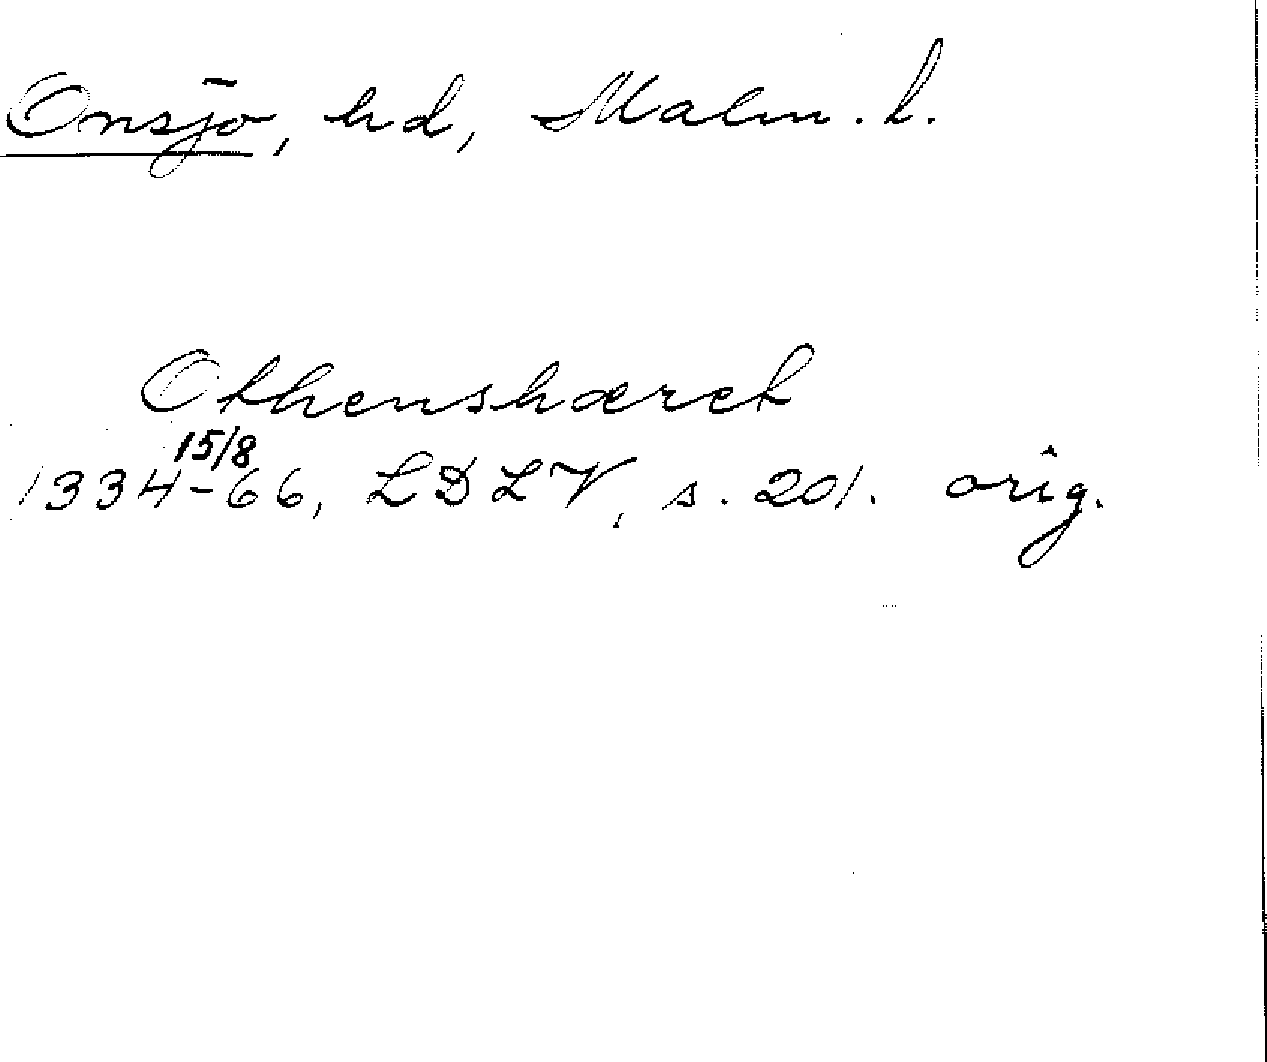 Onsjö, hd, Malm. l.
Othenshæret
15/8
1334-66, LDLV, s. 201. orig.